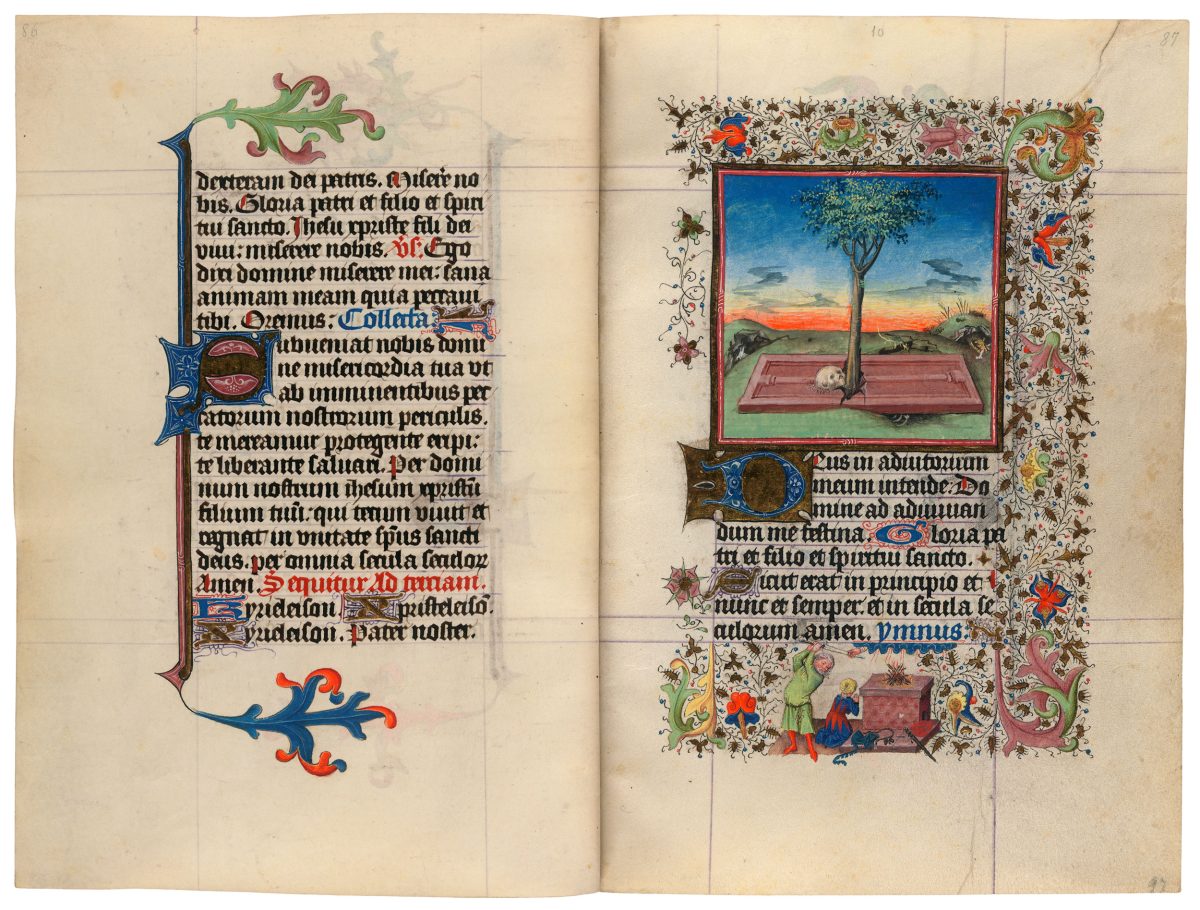 86
dexteram dei patris. Misere no
bis. Gloria patri et filio et spiri
tui sancto. Ihesu xpriste fili dei
viui: miserere nobis. vs: Ego
dixi domine miserere mei: sana
animam meam quia peccaui
tibi. Oremus: Collecta
Subueniat nobis domi
ne misericordia tua vt
ab imminentibus pec
catorum nostrorum periculis.
te mereamur protegente eripi:
te liberante saluari. Per domi
num nostrum ihesum xpristū
filium tuū: qui tecum viuit et
regnat in vnitate spūs sancti
deus. per omnia secula seculoꝝ
Amen. Sequitur Ad terciam.
Kyrieleison. Xpristeleisō.
Kyrieleison. Pater noster.
10
87
Deus in adiutorium
meum intende: Do
mine ad adiuuan
dum me festina. Gloria pa
tri et filio et spiritui sancto.
Sicut erat in principio et
nunc et semper. et in secula se
culorum amen. ymnus:
97